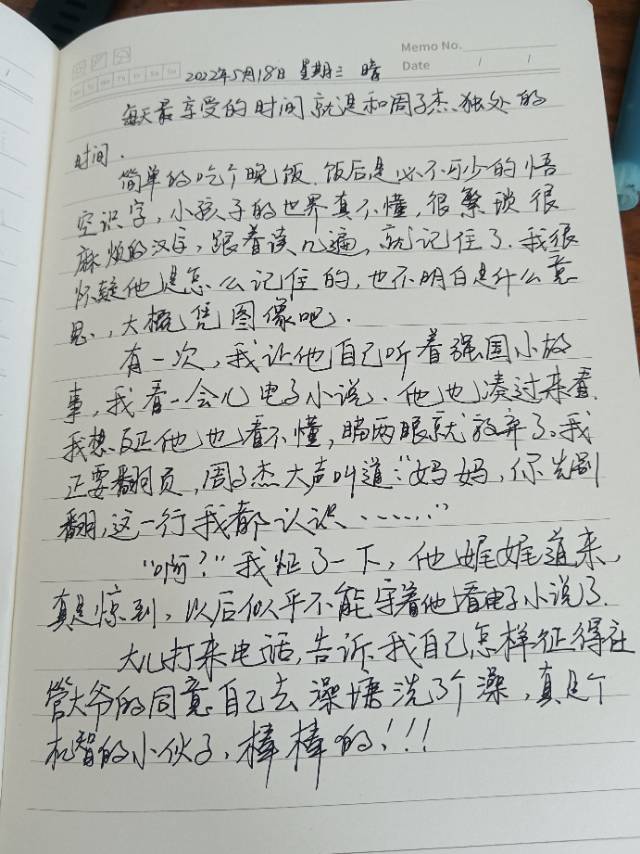 Memo No.
Date / /
Mo Tu We Th Fr Sa Su
2022年5月18日 星期三 晴
每天最享受的时间就是和周子杰独处的
时间.
简单的吃个晚饭.饭后是必不可少的悟
空识字,小孩子的世界真不懂,很繁琐很
麻烦的汉字,跟着读几遍,就记住了.我很
怀疑他是怎么记住的,也不明白是什么意
思,大概凭图像吧.
有一次,我让他自己听着强国小故
事,我看一会儿电子小说.他也凑过来看.
我想反正他也看不懂,瞄两眼就放弃了.我
正要翻页,周子杰大声叫道:“妈妈,你先别
翻,这一行我都认识……”
“啊?”我怔了一下,他娓娓道来,
真是惊到,以后似乎不能守着他看电子小说了.
大儿打来电话,告诉我自己怎样征得庄
管大爷的同意自己去澡塘洗了个澡,真是个
机智的小伙子,棒棒的!!!